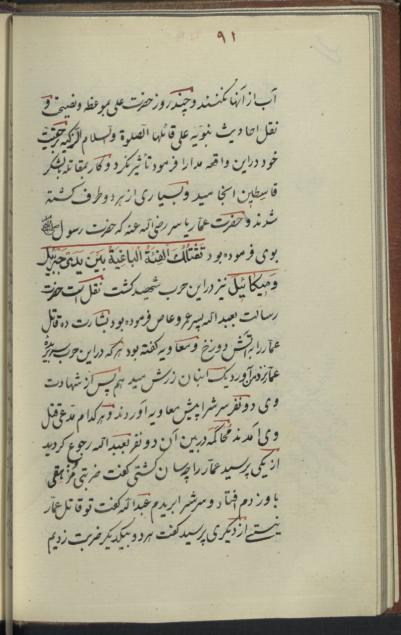 ۹۱
آب از آنها نکنند و چند روز حضرت علی بموعظه و نصیحت و
نقل احادیث نبویه علی قائلها الصلوة والسلام
خود در این واقعه مدارا فرمود تأثیر نکرد و کار بمقاتله لشکر
قاسطین انجامید و بسیاری از هر دو طرف کشته
شدند و حضرت عمار یاسر رضی الله عنه که حضرت رسول
بوی فرموده بود تقتلک الفئة الباغیة بین یدی جبریل
و میکائیل نیز در این حرب شهید گشت نقل است حضرت
رسالت بعبد الله پسر عمرو عاص فرموده بود بشارت ده قاتل
عمار را بآتش دوزخ و معاویه گفته بود هر که در این حرب سر
عمار نزد من آورد یک انبان زرش میدهم پس از شهادت
وی دو نفر سرش را پیش معاویه آوردند و هر کدام مدعی قتل
وی آمدند محاکمه در بین آن دو نفر بعبد الله رجوع گردید
از یکی پرسید عمار را چسان کشتی گفت ضربتی
باو زدم افتاد و سرش را بریدم عبد الله گفت تو قاتل عمار
نیستی از دیگری پرسید گفت هر دو بیکدیگر ضربت زدیم